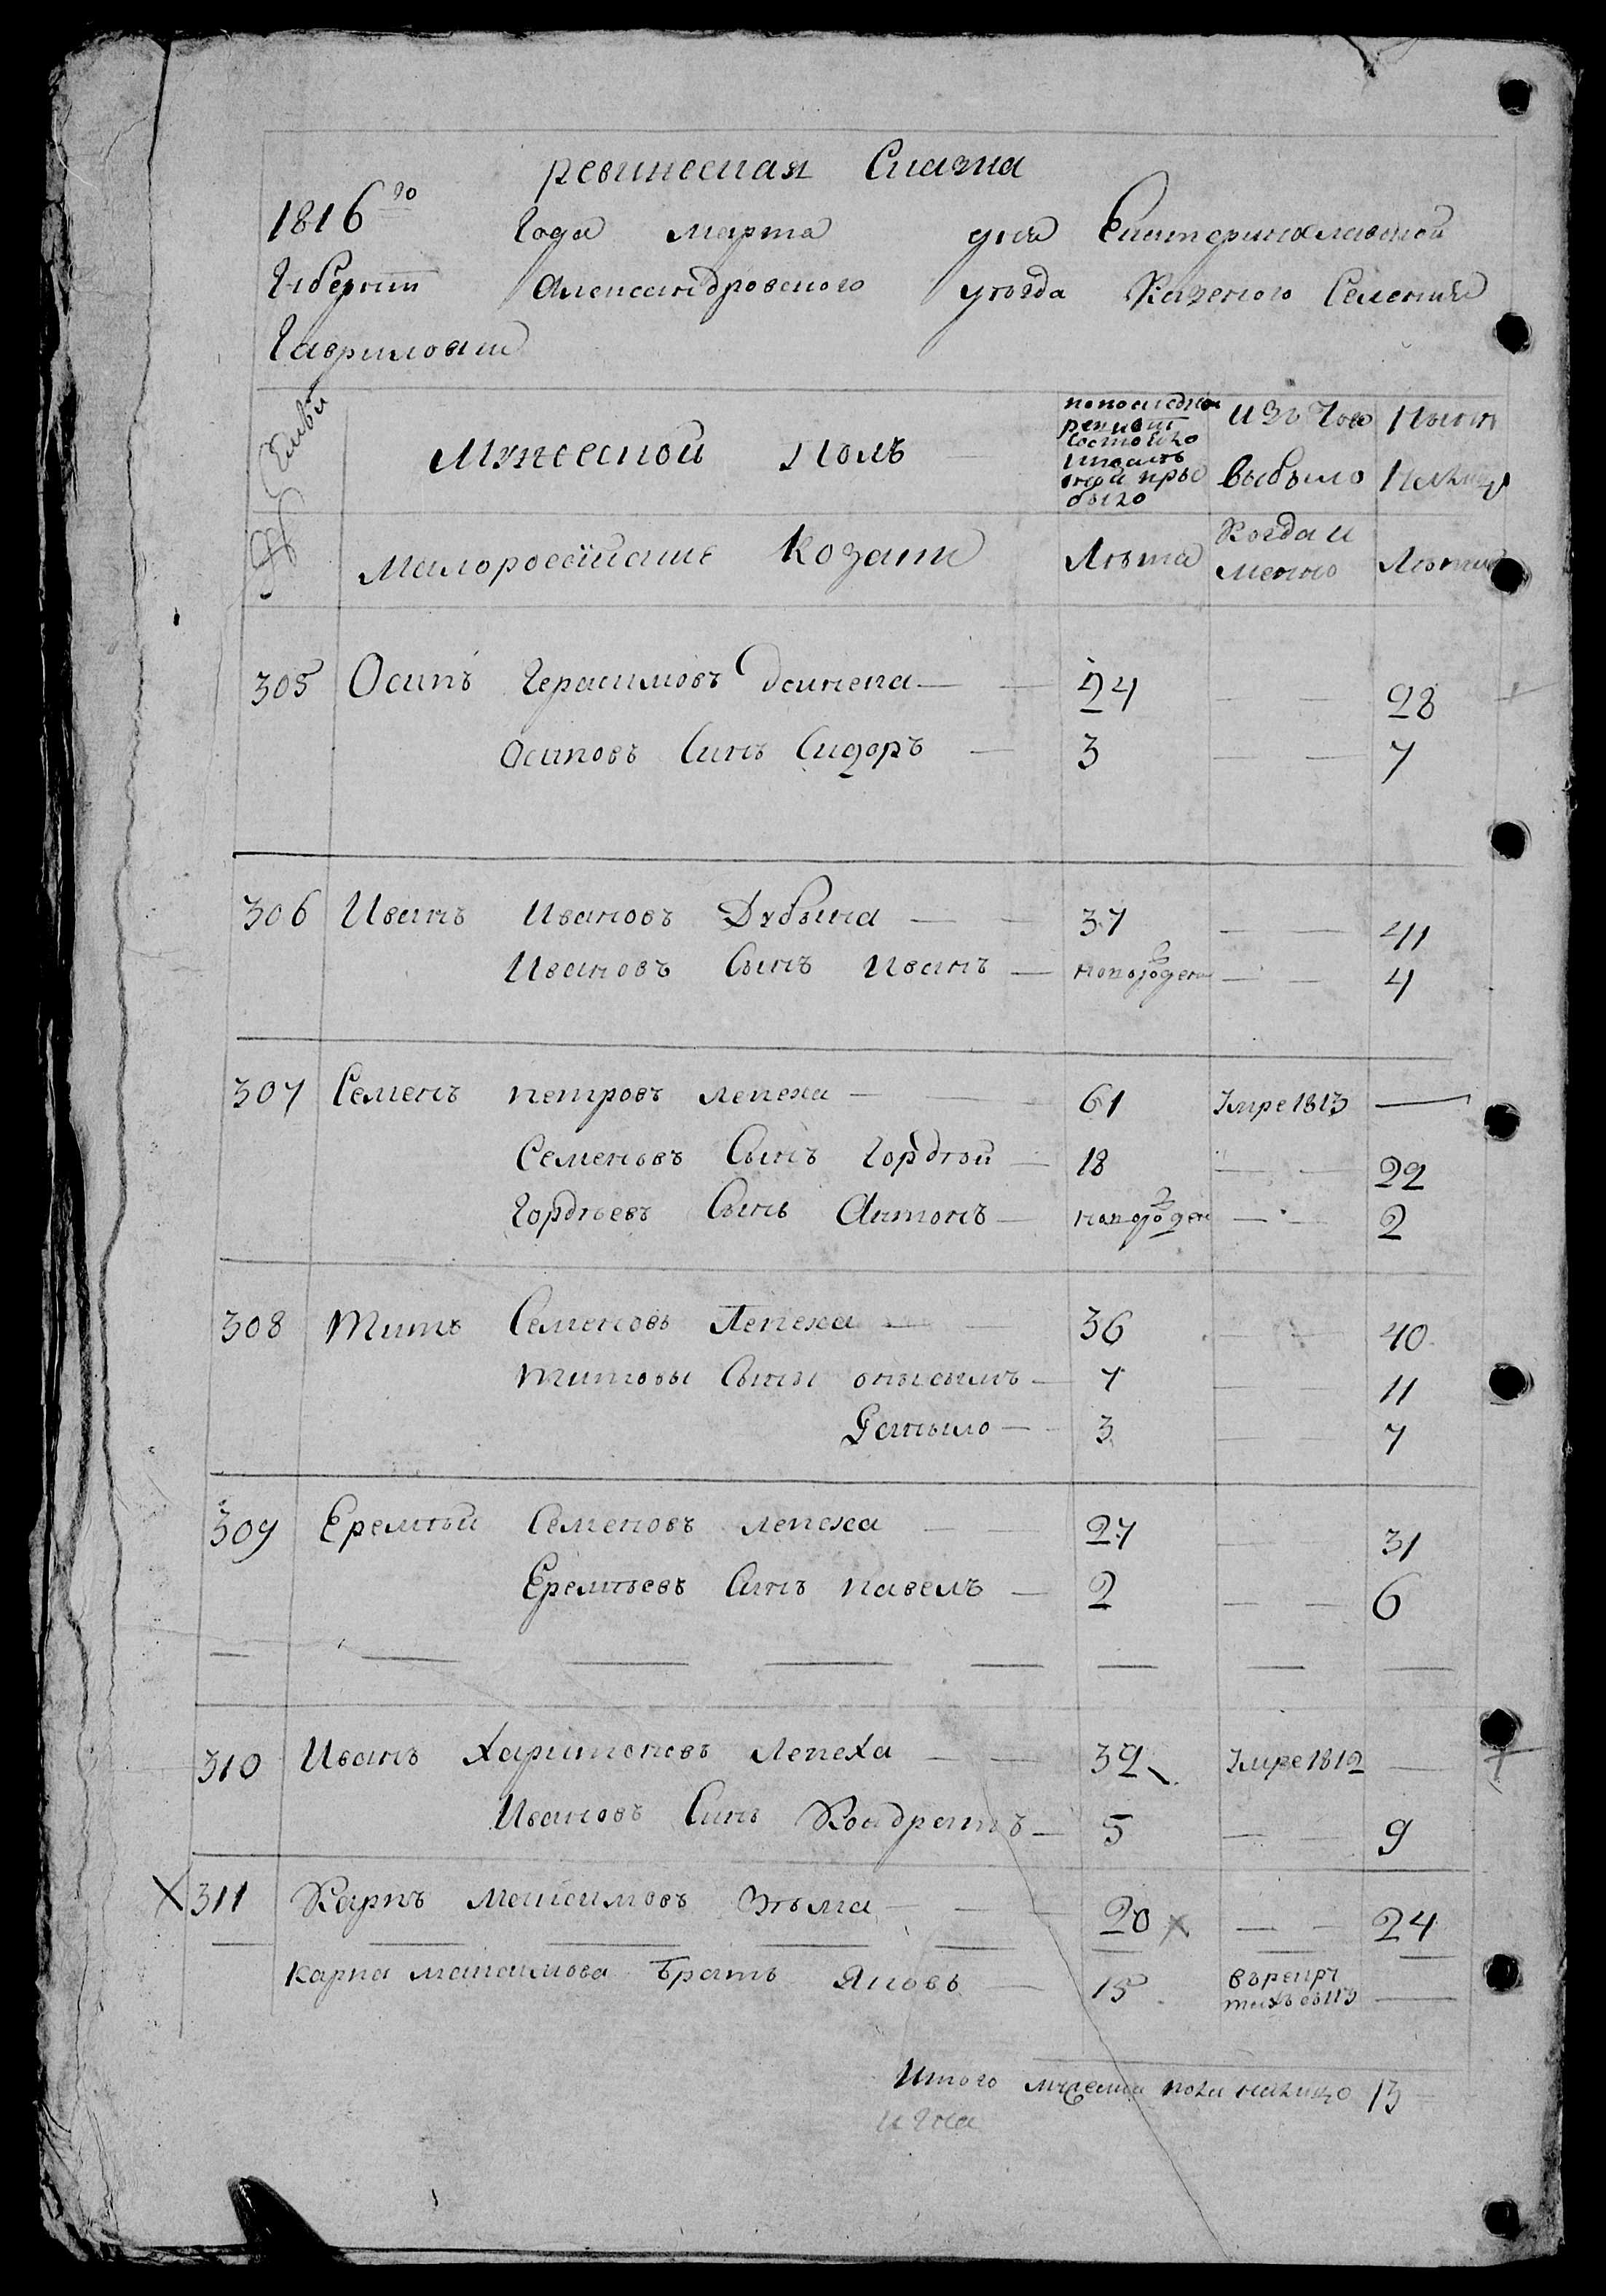 ревижская Сказка
1816го Года Марта дня Екатеринославской
Губернии Александровского уезда Казеного Селения
Гавриловки
Мужеской Полъ
попоследней ревизии состояло и после оной прибыло
изъ того выбыло
Ныне Налицо
Малороссийские Козаки
Лѣта
Когда именно
Лѣта
305 Осипъ Герасимовъ — 24 — — 28
Осиповъ Синъ Сидоръ — 3 — — 7
306 Иванъ Ивановъ Дубына — — 37 — — 41
Ивановъ Сынъ Иванъ — новорожден — — 4
307 Семенъ петровъ лепеха — — 61 Умре 1813 —
Семеновъ Сынъ Гордѣй — 18 — — 22
Гордѣевъ Сынъ Антонъ — новорожден — — 2
308 Титъ Семеновъ Лепеха — — 36 — — 40
Титовы Сыны онысымъ — 7 — — 11
Даныло — 3 — 7
309 Еремѣй Семеновъ лепеха — — 27 — — 31
Еремѣевъ Синъ павелъ — 2 — — 6
310 Иванъ Харитоновъ Лепеха — — 39 Умре 1812 —
Ивановъ Синъ Кондратъ — 5 — — 9
311 Карпъ Максимовъ — — 20 — — 24
Карпа максимова Братъ Яковъ — 15 въ рекр —
Итого мужеска пола налицо 13